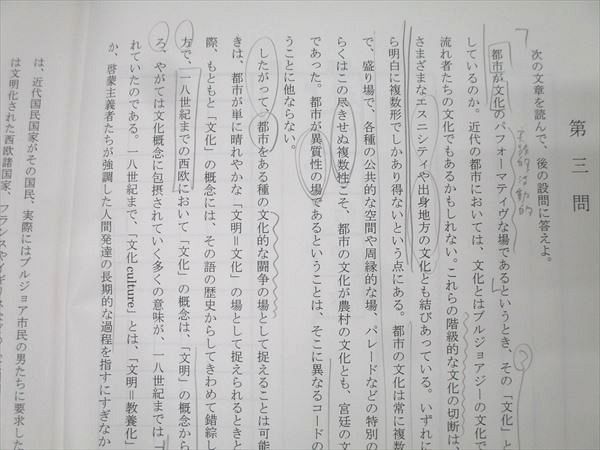 第三問
次の文章を読んで、後の設問に答えよ。
都市が文化のパフォーマティヴな場であるというとき、その「文化」と
しているのか。近代の都市においては、文化とはブルジョアジーの文化で
流れ者たちの文化でもあるかもしれない。これらの階級的な文化の切断は、
さまざまなエスニシティや出身地方の文化とも結びあっている。いずれに
ら明白に複数形でしかあり得ないという点にある。都市の文化は常に複数
で、盛り場で、各種の公共的な空間や周縁的な場、パレードなどの特別の
らくはこの尽きせぬ複数性こそ、都市の文化が農村の文化とも、宮廷の文
であった。都市が異質性の場であるということは、そこに異なるコードの
うことに他ならない。
したがって、都市をある種の文化的な闘争の場として捉えることは可能
きは、都市が単に晴れやかな「文明＝文化」の場として捉えられるときと
際、もともと「文化」の概念には、その語の歴史からしてきわめて錯綜し
方で、一八世紀までの西欧において「文化」の概念は、「文明」の概念から
ろ、やがては文化概念に包摂されていく多くの意味が、一八世紀までは「
れていたのである。一八世紀まで、「文化culture」とは、「文明＝教養化」
か、啓蒙主義者たちが強調した人間発達の長期的な過程を指すにすぎなか
は、近代国民国家がその国民、実際にはブルジョア市民の男たちに要求した
は文明化された西欧諸国家、フランスやイギリス